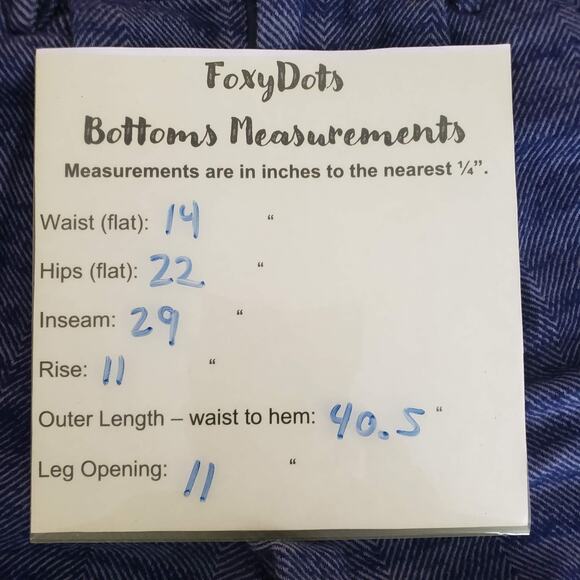 FoxyDots
Bottoms Measurements
Measurements are in inches to the nearest ¼”.
Waist (flat): 14 “
Hips (flat): 22 “
Inseam: 29 “
Rise: 11 “
Outer Length – waist to hem: 40.5 “
Leg Opening: 11 “